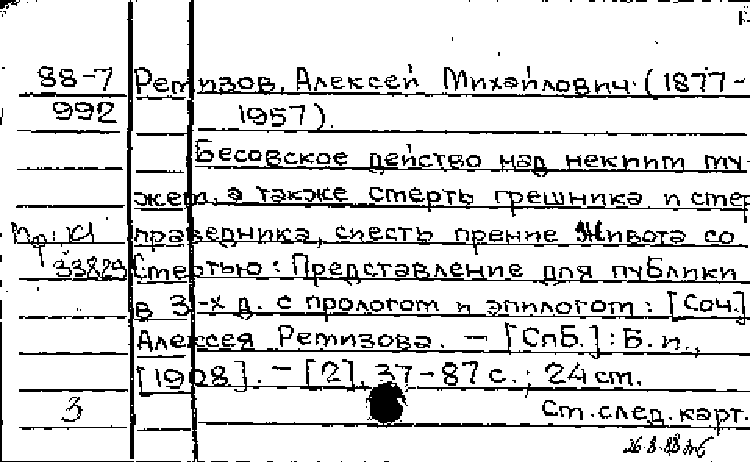 88-7 Ремизов, Алексей Михайлович. (1877-
992 1957).
Бесовское действо над неким му-
жем, а также смерть грешника и смер
праведника, сиесть прение Живота со
Пр: КI
33829 Смертью: Представление для публики
в 3-х д. с прологом и эпилогом: [Соч.]
Алексея Ремизова. — [СпБ.]: Б.и.,
[1908]. — [2], 37-87 с.; 24 см.
3 Ст. след. карт.